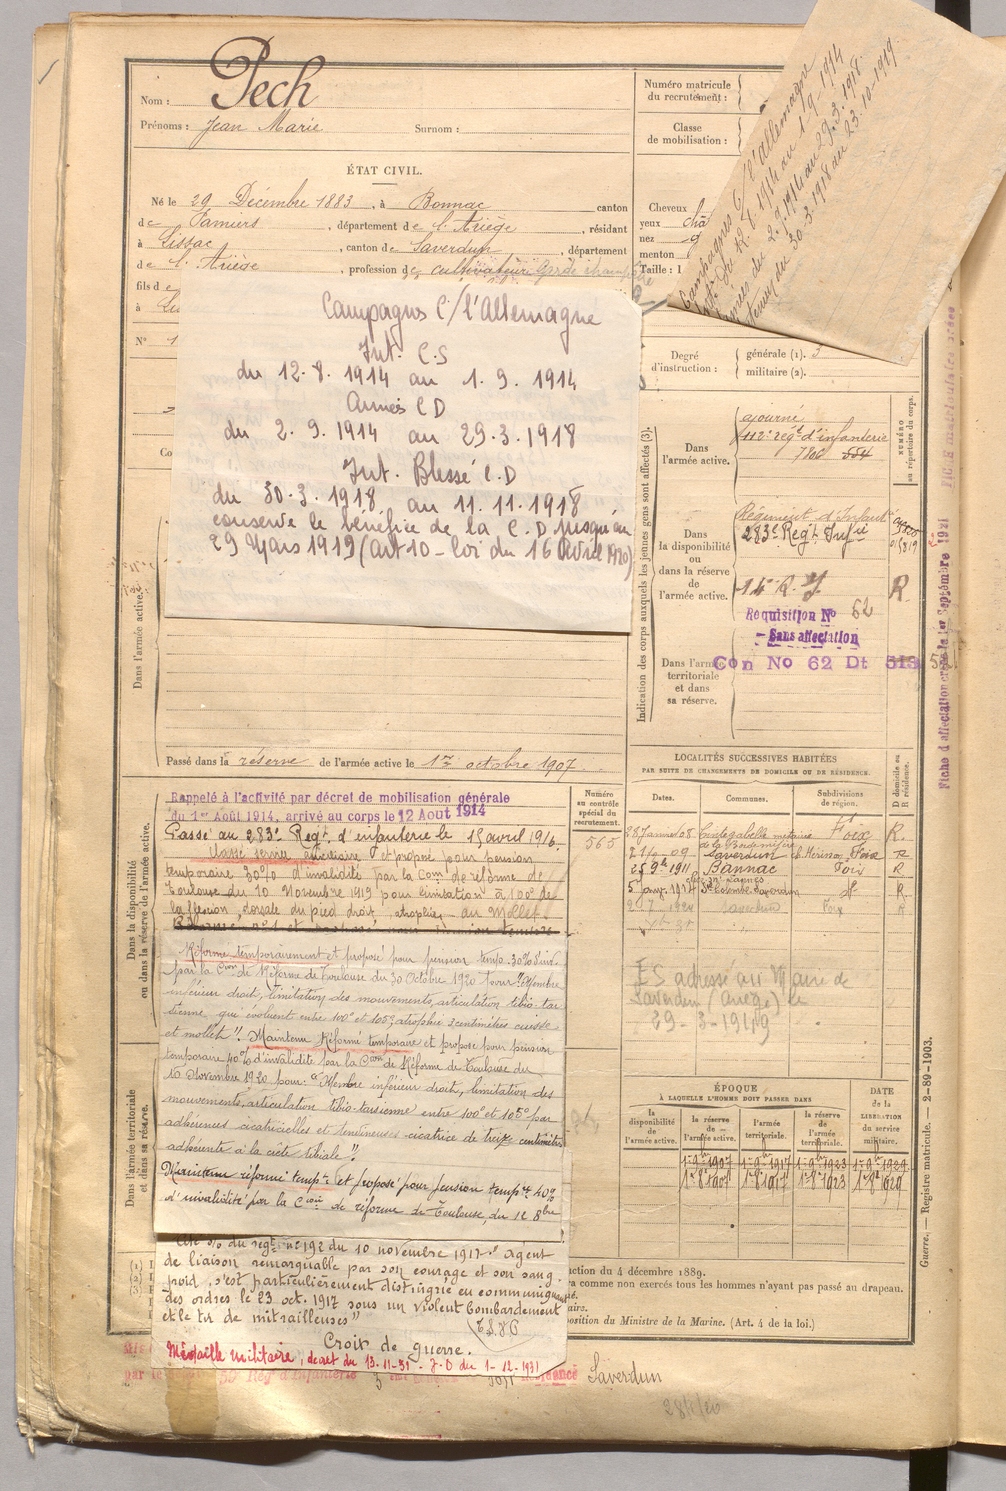 Pech
Nom :
Prénoms : Jean Marie Surnom :
Numéro matricule
du recrutement :
Classe
de mobilisation :
ÉTAT CIVIL.
Né le 29 Décembre 1883, à Bonnac canton
de Pamiers, département de l'Ariège, résidant
à Lissac, canton de Saverdun, département
de l'Ariège, profession de cultivateur Garde champêtre
fils de
à
N° 1
Cheveux
yeux châ
nez
menton
Taille : 1
Campagnes C/l'allemagne
du 12.8.1914 au 1.9.1914
du 2.9.1914 au 29.3.1918
du 30.3.1918 au 23.10.1919
Campagnes C/l'Allemagne
Int. C.S
du 12.8.1914 au 1.9.1914
Armées CD
du 2.9.1914 au 29.3.1918
Int. Blessé C.D
du 30.3.1918 au 11.11.1918
conserve le bénéfice de la C.D. jusqu'au
29 Mars 1919 (art 10 - loi du 16 Avril 1920)
Degré
d'instruction :
générale (1). 3
militaire (2).
Indication des corps auxquels les jeunes gens sont affectés (3).
NUMÉRO
au répertoire du corps.
Dans
l'armée active.
ajourné
112e régt d'infanterie
Dans
la disponibilité
ou
dans la réserve
de
l'armée active.
Régiment d'Infant
283e Régt Infie
R
Requisition No 62
- Sans affectation
Con No 62 Dt 513
Dans l'armée
territoriale
et dans
sa réserve.
Fiche d'affectation créée le 1er Septembre 1921
Dans l'armée active.
Passé dans la réserve de l'armée active le 1er octobre 1907
Rappelé à l'activité par décret de mobilisation générale
du 1er Août 1914, arrivé au corps le 12 Aout 1914
Passé au 283e Régt d'infanterie le 15 avril 1916.
Classé service auxiliaire et proposé pour pension
temporaire 30% d'invalidité par la Com de réforme de
Toulouse du 10 Novembre 1919 pour limitation à 100° de
la flexion dorsale du pied droit, atrophie du mollet.
Réforme temporairement et proposé pour pension temp. 30% d'inv.
par la Cion de Réforme de Toulouse du 30 Octobre 1920 pour "Membre
inférieur droit, limitation des mouvements, articulation tibio-tar
sienne, qui évoluent entre 100° et 105°, atrophie 3 centimètres cuisse
et mollet". Maintenu Réformé temporaire et proposé pour pension
temporaire 40% d'invalidité par la Cion de Réforme de Toulouse du
10 Novembre 1920 pour: "Membre inférieur droit, limitation des
mouvements, articulation tibio-tarsienne entre 100° et 105° par
adhérences cicatricielles et tendineuses cicatrice de treize centimètres
adhérente à la crête tibiale".
Maintenu réformé tempre et proposé pour pension tempre 40%
d'invalidité par la Cion de réforme de Toulouse, du 12 8bre
Cité % du régt no 192 du 10 novembre 1917 "agent
de liaison remarquable par son courage et son sang
froid, s'est particulièrement distingué en communiquant
des ordres le 23 oct. 1917 sous un violent bombardement
et le tir de mitrailleuses"
Croix de guerre.
Médaille militaire, décret du 13-11-31 - J.O du 1-12-1931
Dans la disponibilité
ou dans la réserve de l'armée active.
Dans l'armée territoriale
et dans sa réserve.
Numéro
au contrôle
spécial du
recrutement.
565
LOCALITÉS SUCCESSIVES HABITÉES
PAR SUITE DE CHANGEMENTS DE DOMICILE OU DE RÉSIDENCE.
Dates. Communes. Subdivisions
de région. D domicile ou
R résidence.
28 Janvier 08 Cintegabelle métairie Foix R.
Saverdun Foix R
25 9bre 1911 Bonnac Foix R
5 janv. 1914 R
Saverdun Foix R
ES adressé au Maire de
Saverdun (Ariège) le
29-3-1919
ÉPOQUE
À LAQUELLE L'HOMME DOIT PASSER DANS
la
disponibilité
de
l'armée active.
la réserve
de
l'armée active.
l'armée
territoriale.
la réserve
de
l'armée
territoriale.
DATE
de la
LIBÉRATION
du service
militaire.
1er 9bre 1907 1er 9bre 1917 1er 9bre 1923 1er 9bre 1929
1er 8bre 1907 1er 8bre 1917 1er 8bre 1923 1er 8bre 1929
Guerre. — Registre matricule. — 2-89-1903.
(1)
(2)
(3)
action du 4 décembre 1889.
ra comme non exercés tous les hommes n'ayant pas passé au drapeau.
position du Ministre de la Marine. (Art. 4 de la loi.)
59e Régt d'Infanterie
Saverdun